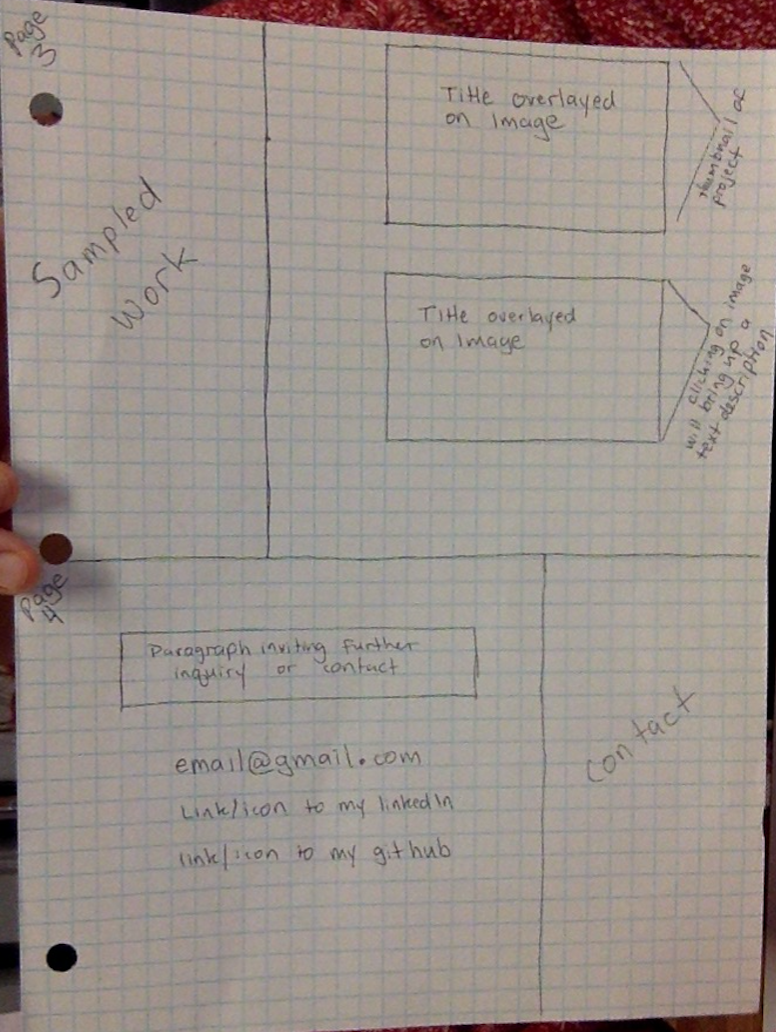 Page
3
Sampled
Work
Title overlayed
on Image
thumbnail of
project
Title overlayed
on Image
clicking on image
will bring up a
text description
Page
4
Paragraph inviting further
inquiry or contact
email@gmail.com
Link/icon to my linkedIn
link/icon to my github
Contact